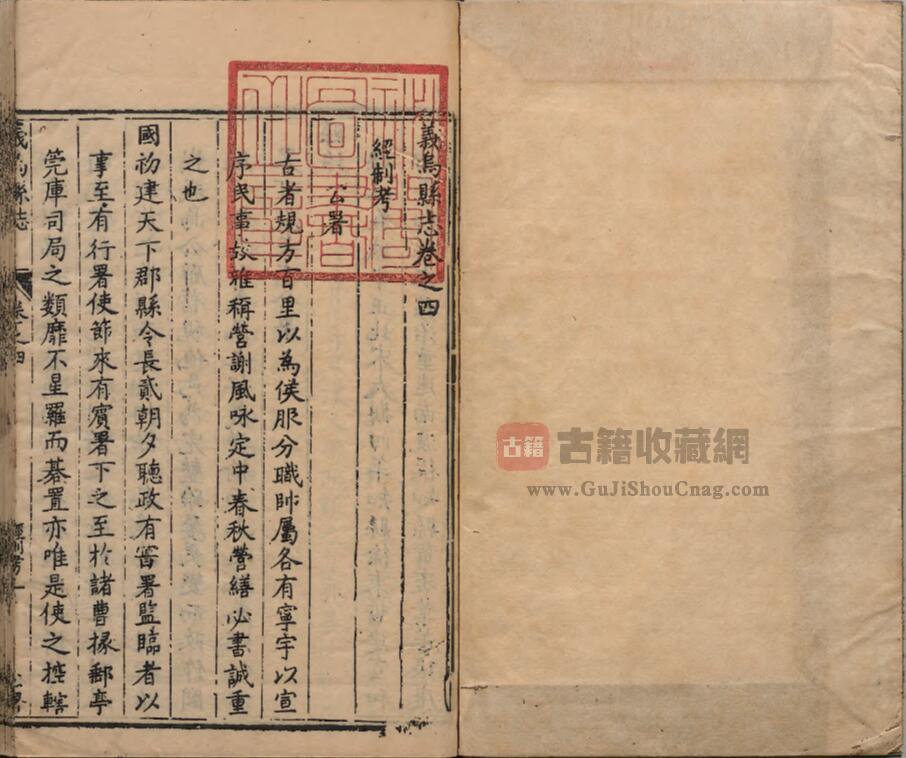 義烏縣志卷之四
經制考
公署
古者規方百里以為侯服分職帥屬各有寧宇以宣
序民事故雅稱營謝風咏定中春秋營繕必書誠重
之也
國初建天下郡縣令長貳朝夕聽政有署監臨者以
事至有行署使節來有賓署下之至於諸曹掾郵亭
筦庫司局之類靡不星羅而碁置亦唯是使之控轄
義烏縣志
卷之四
經制考
古籍
古籍收藏網
www.GuJiShouCnag.com